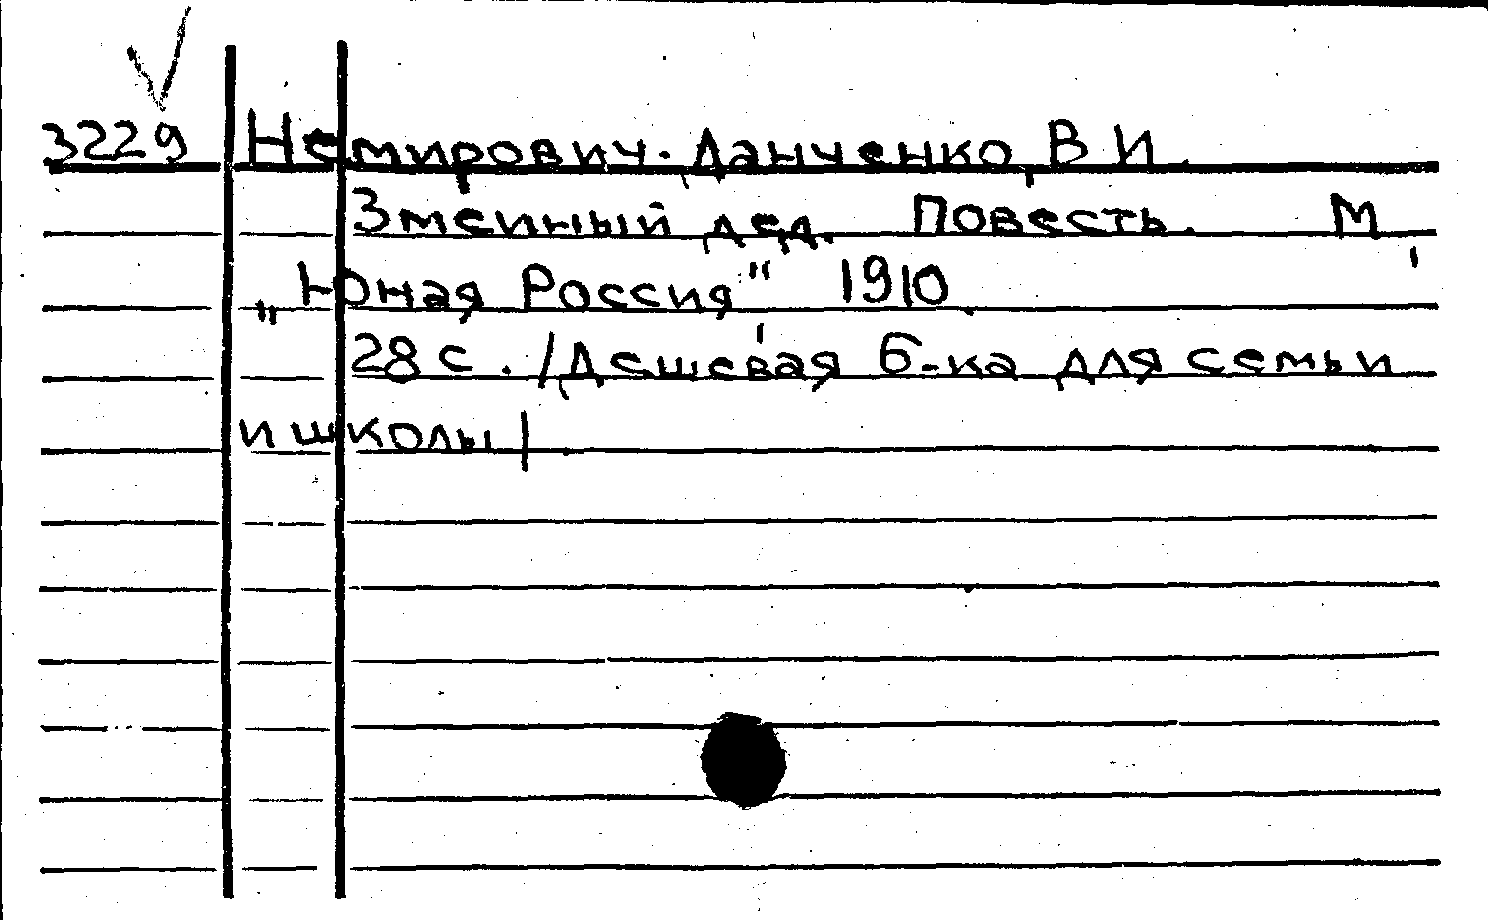 3229 Немирович-Данченко, В И.
Змеиный дед. Повесть. М,
„Юная Россия", 1910.
28 с. /Дешевая б-ка для семьи
и школы/.